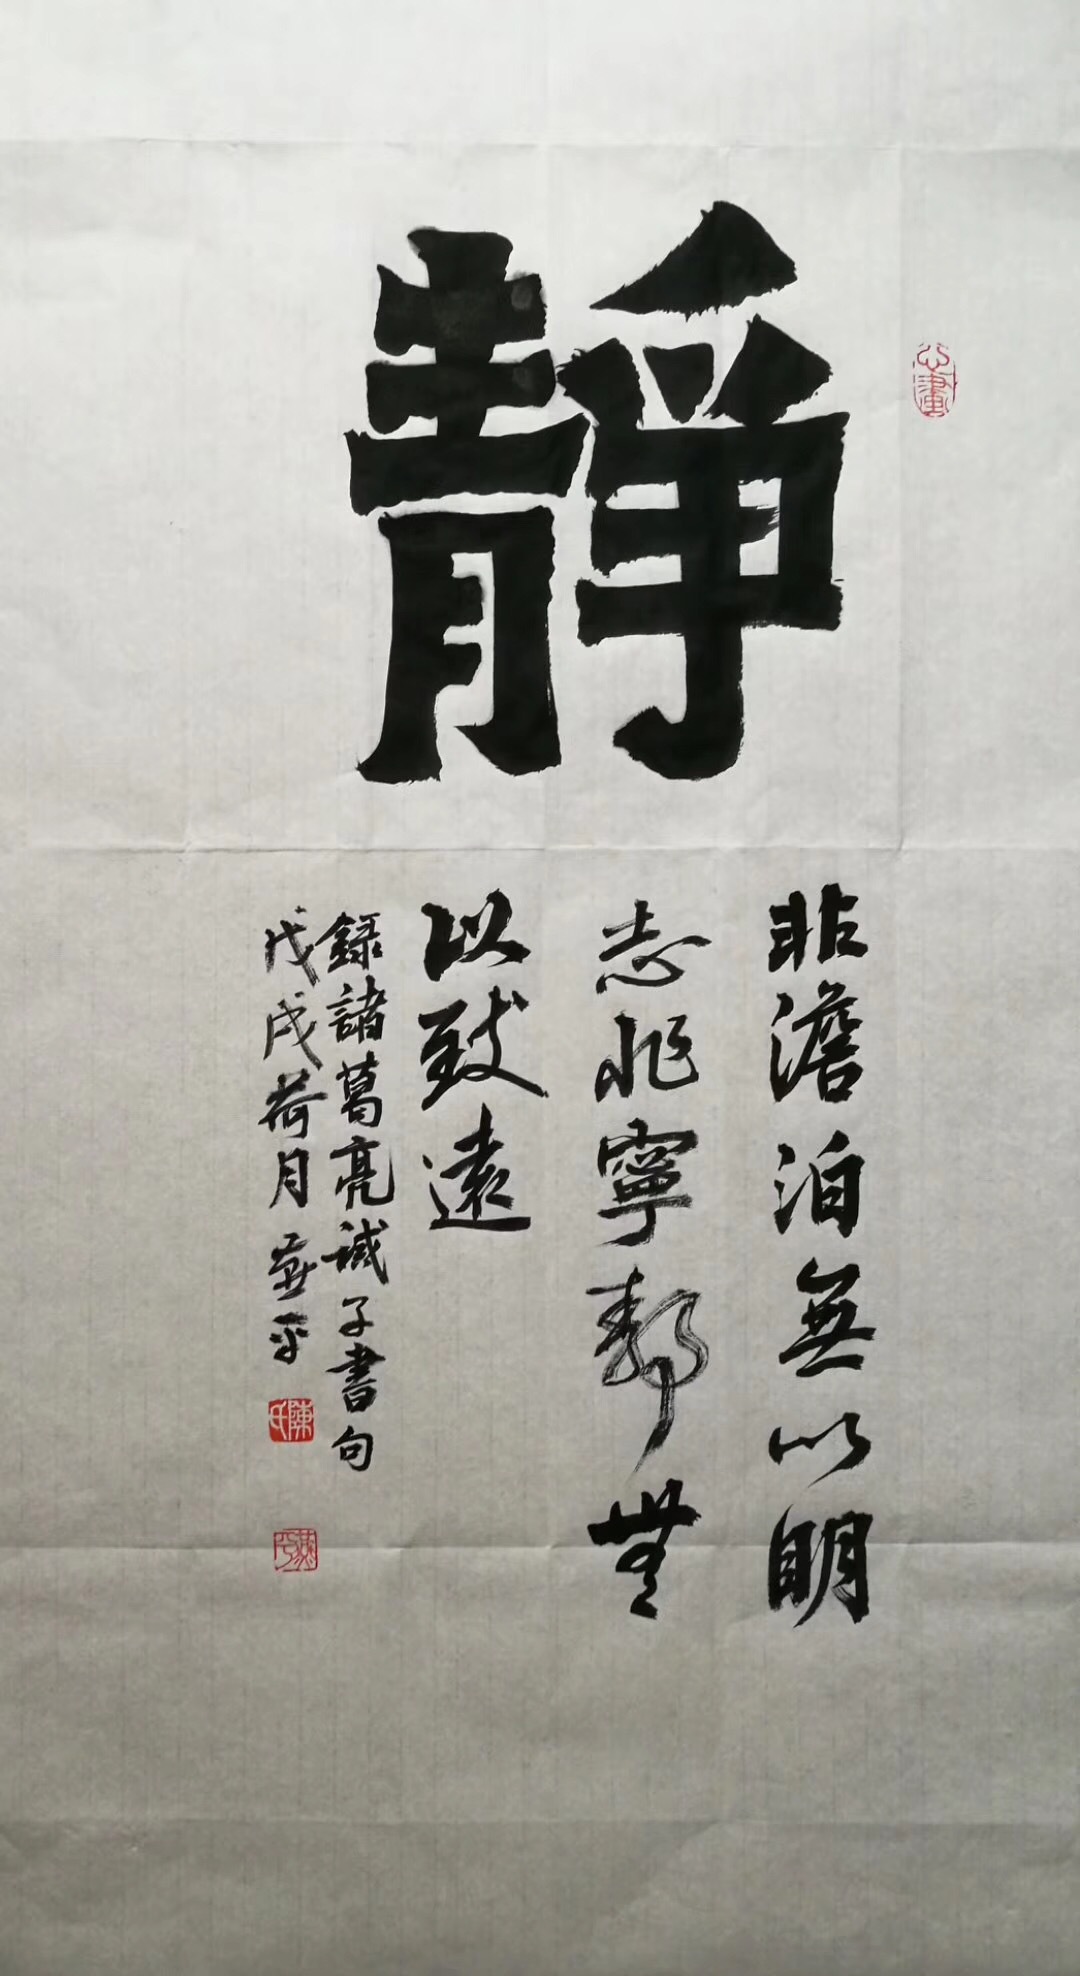 靜
非澹泊無以明
志非寧靜無
以致遠
錄諸葛亮誡子書句
戊戌荷月燕平
心畫
陳氏
燕平